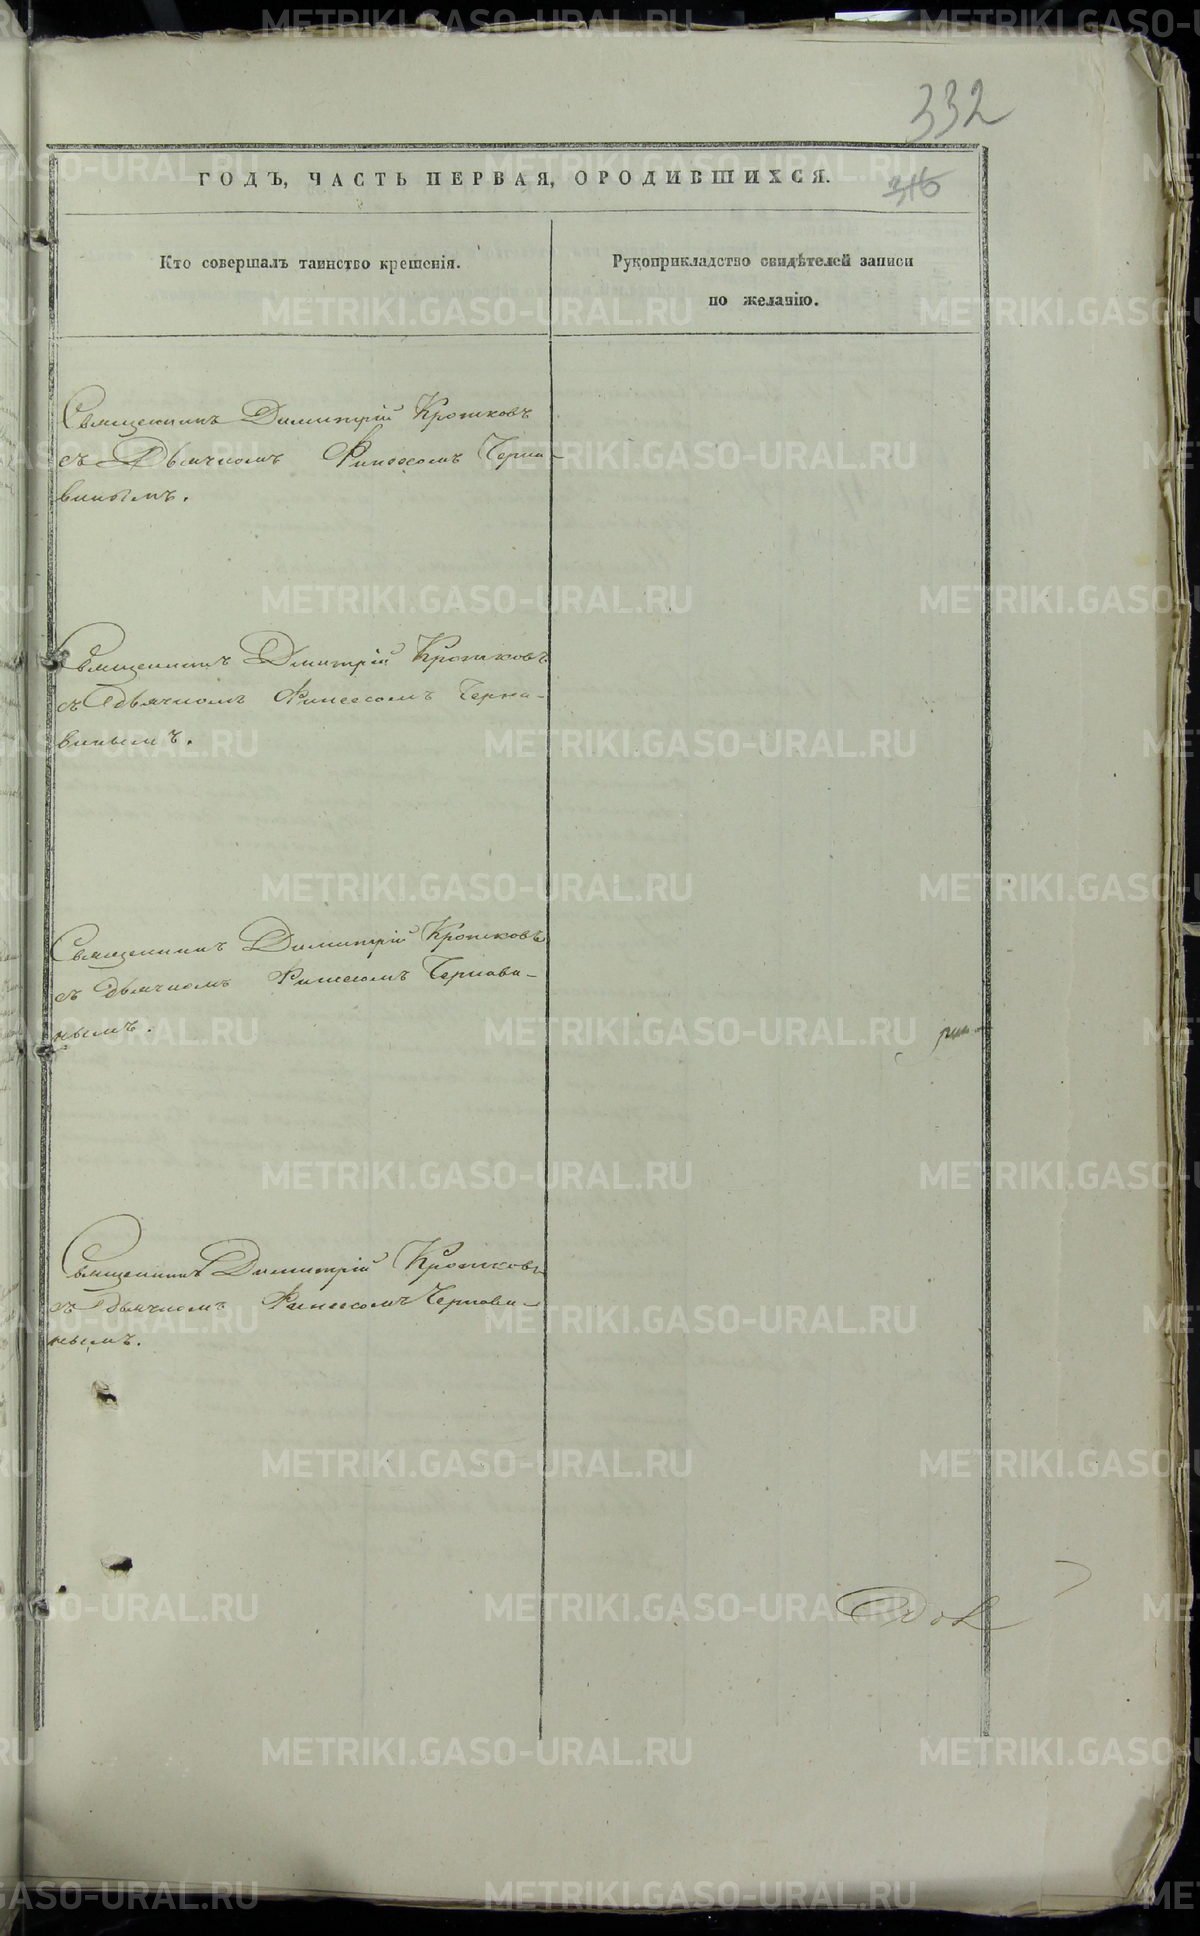 332
ГОДЪ, ЧАСТЬ ПЕРВАЯ, ОРОДИВШИХСЯ.
315
Кто совершалъ таинство крещенія.
Рукоприкладство свидѣтелей записи
по желанію.
Священникъ Димитрій Кротковъ
съ Дьячкомъ Финеесомъ Черна-
винымъ.
Священникъ Дмитрій Кротковъ
съ Дьячкомъ Финеесомъ Черна-
винымъ.
Священникъ Димитрій Кротковъ
съ Дьячкомъ Финеесомъ Чернави-
нымъ.
Священникъ Димитрій Кротковъ
съ Дьячкомъ Финеесомъ Чернави-
нымъ.
METRIKI.GASO-URAL.RU